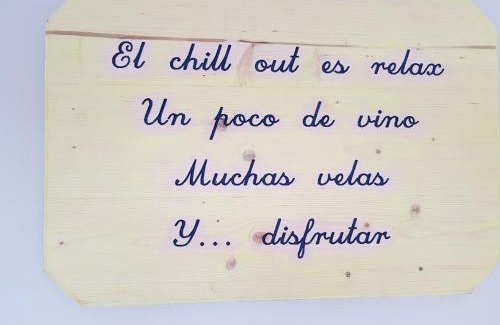 El chill out es relax
Un poco de vino
Muchas velas
Y... disfrutar